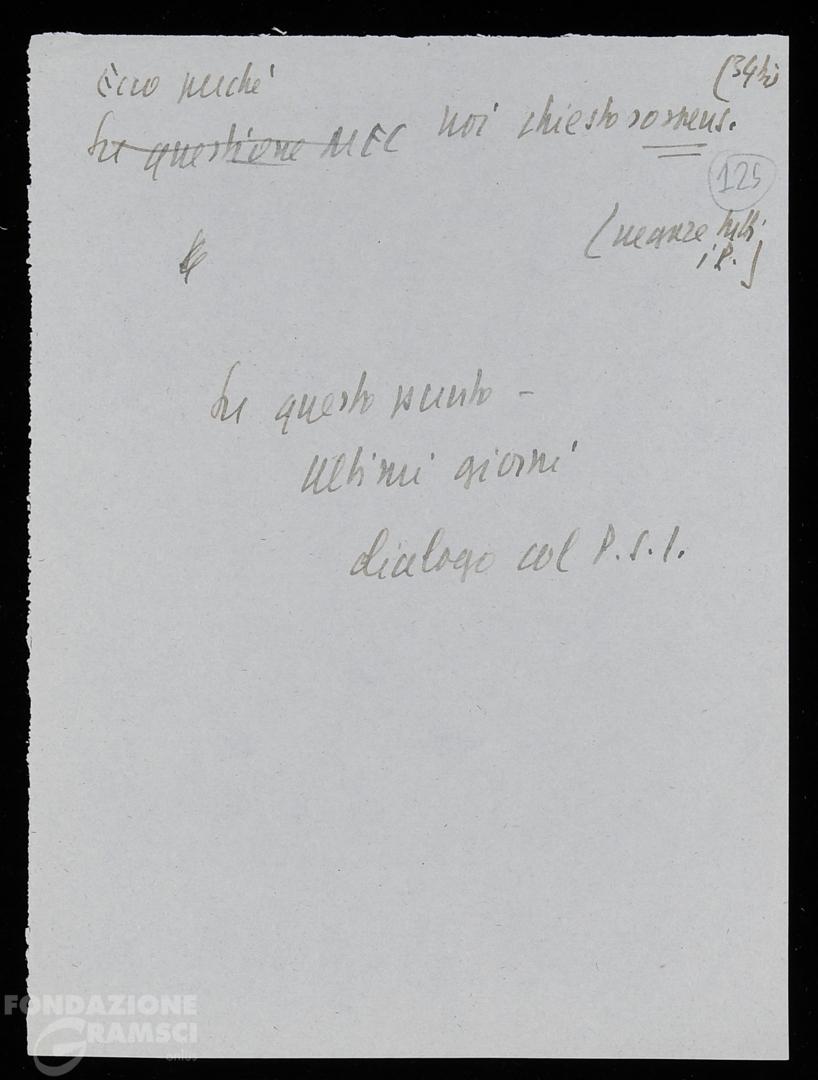 Ecco perché
(34bis
Su questione MEC noi chiesto sospens.
125
(neanze tutti
i P.)
Su questo punto –
ultimi giorni
dialogo col P.S.I.
FONDAZIONE
GRAMSCI
onlus